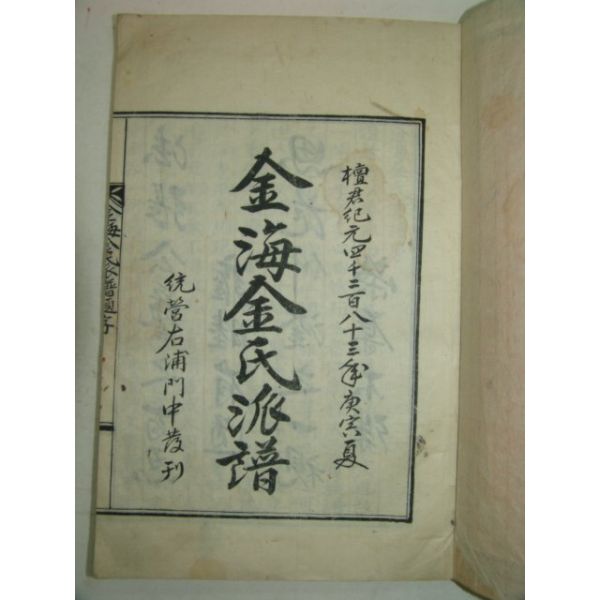 檀君紀元四千二百八十三年庚寅夏
金海金氏派譜
統營右浦門中發刊
金海金氏派譜